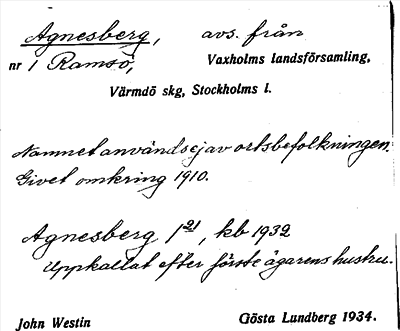 Agnesberg, avs. från
nr 1 Ramsö, Vaxholms landsförsamling,
Värmdö skg, Stockholms l.
Namnet användsejav ortsbefolkningen.
Givet omkring 1910.
Agnesberg 1²¹, kb 1932
Uppkallat efter förste ägarens hustru.
John Westin Gösta Lundberg 1934.